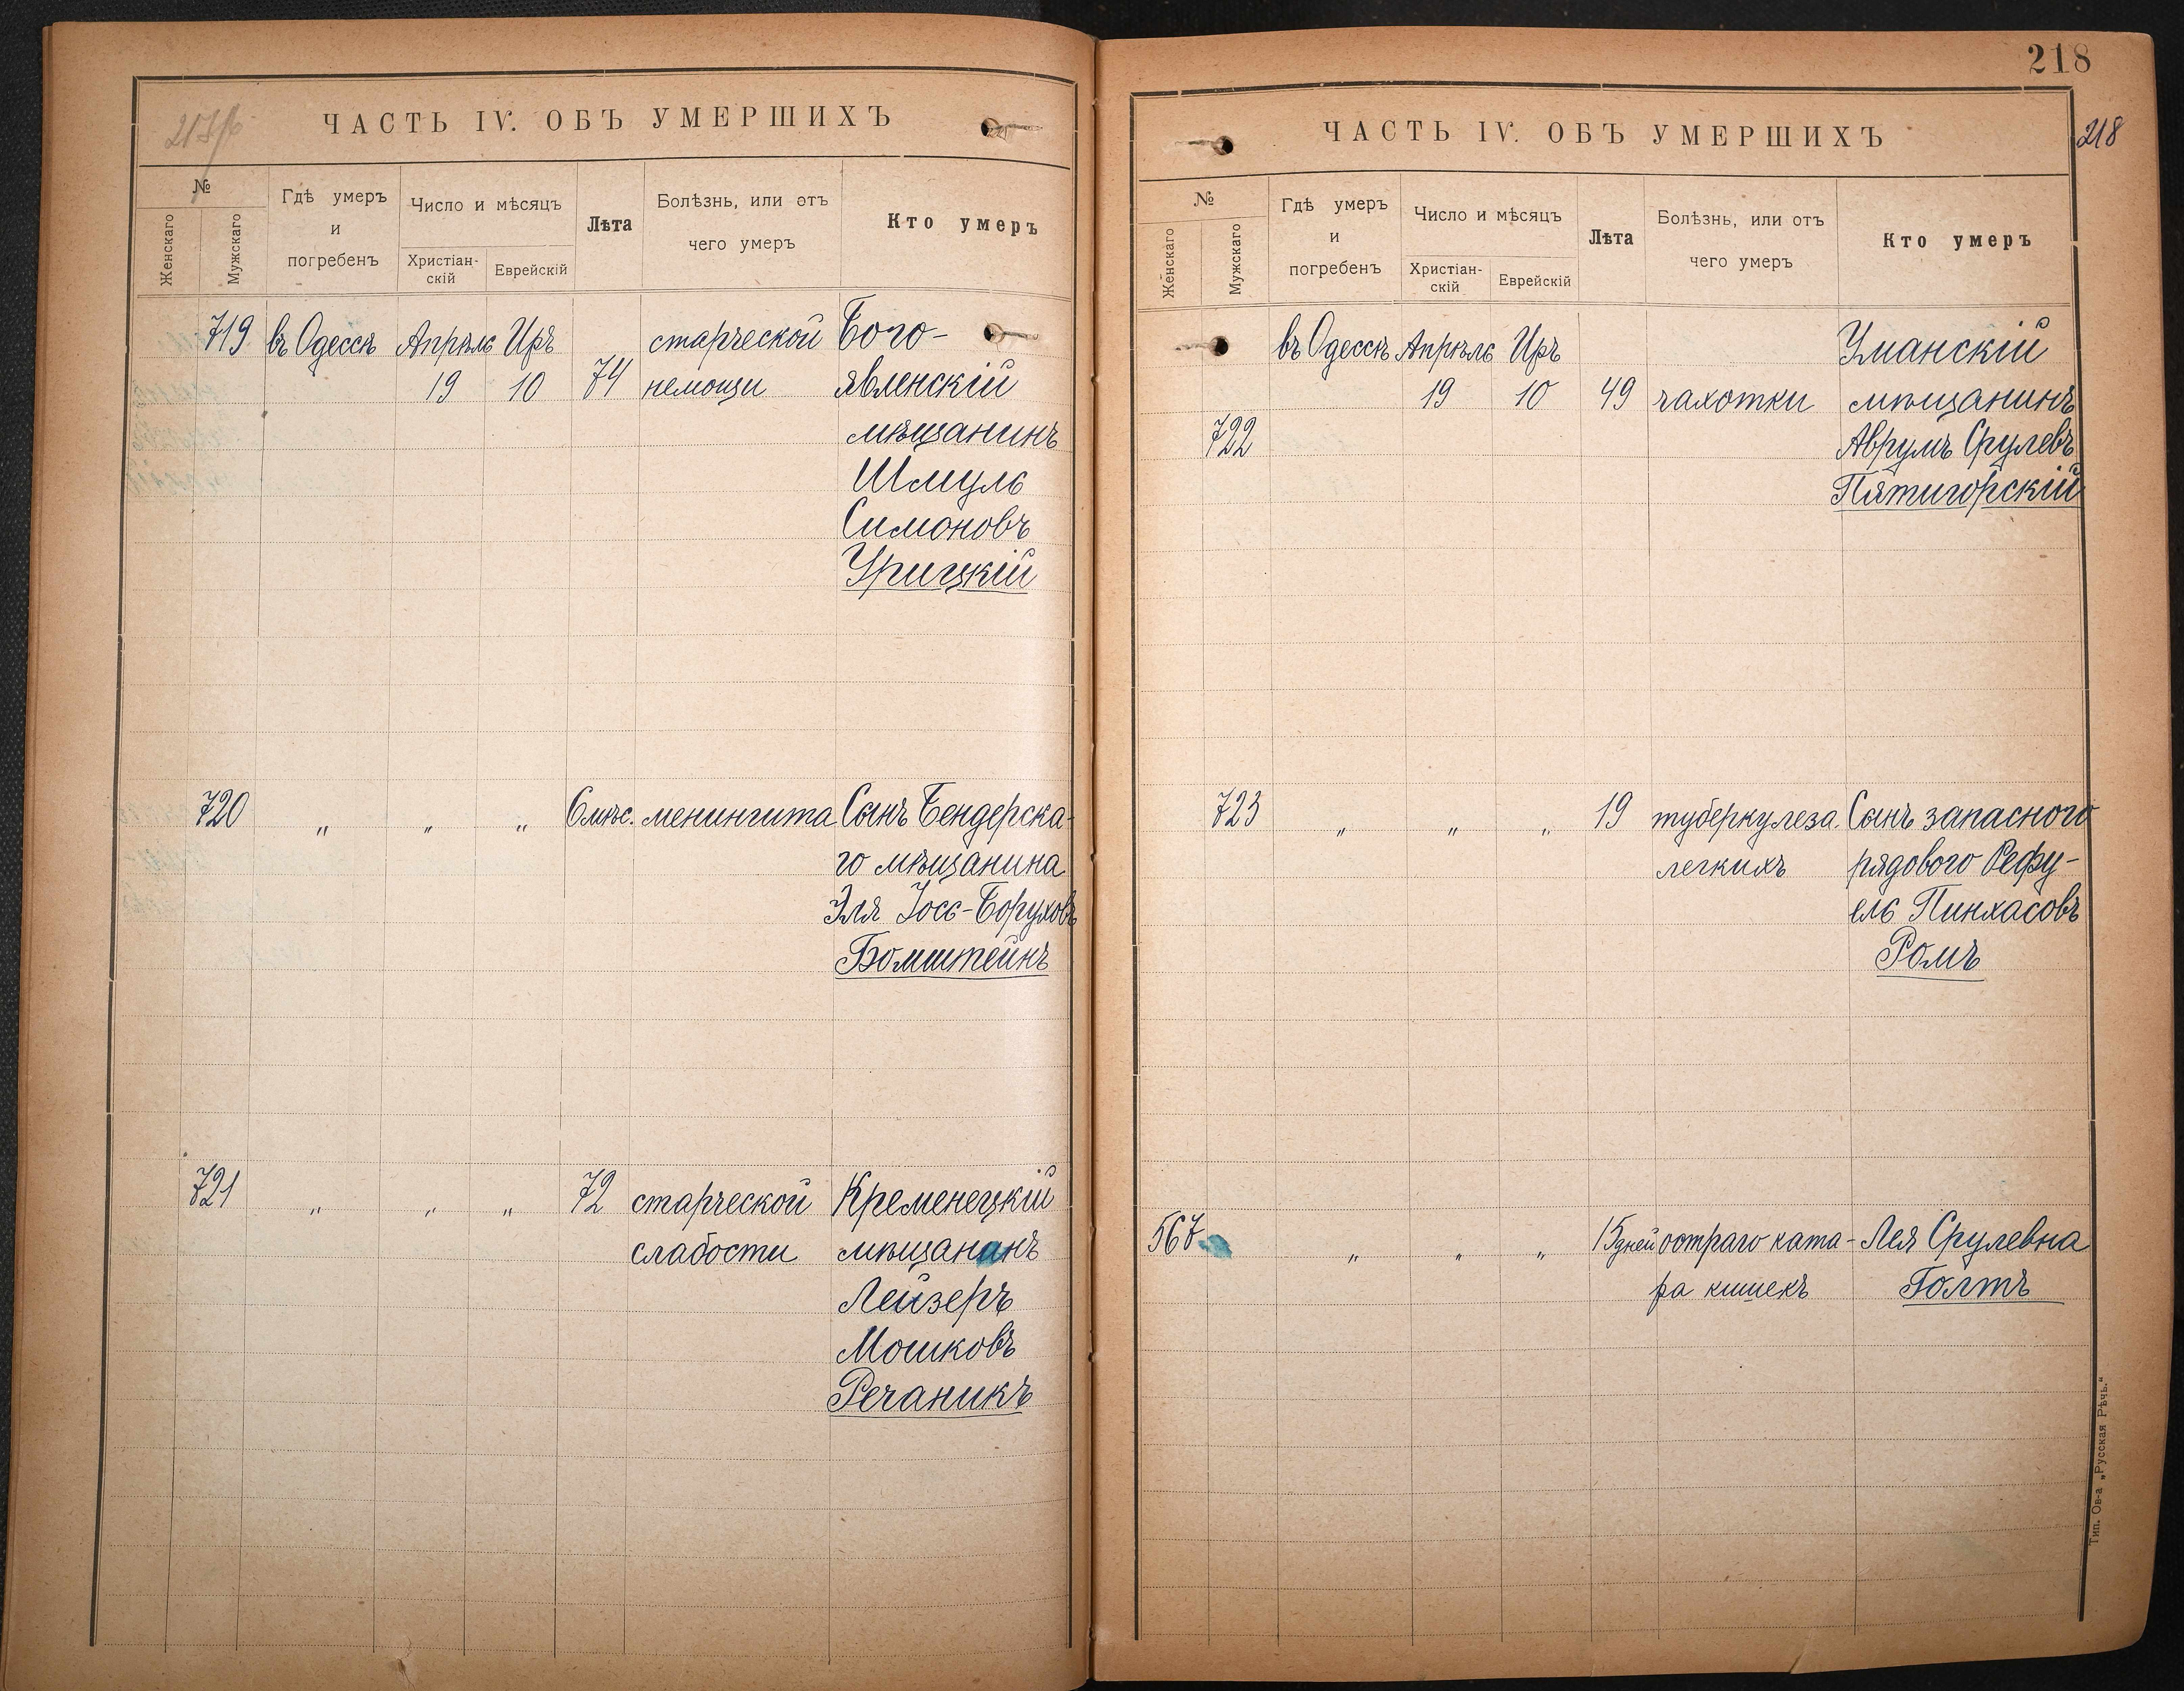 ЧАСТЬ IV. ОБЪ УМЕРШИХЪ
№
Женскаго
Мужскаго
Гдѣ умеръ
и
погребенъ
Число и мѣсяцъ
Христіан-
скій
Еврейскій
Лѣта
Болѣзнь, или отъ
чего умеръ
Кто умеръ
719 въ Одессѣ Апрѣль Иръ старческой Бого-
19 10 74 немощи явленскій
мѣщанинъ
Шмуль
Симоновъ
Урицкій
720 „ „ „ 6 мѣс. менингита Сынъ Бендерска-
го мѣщанина
Эля Іось-Боруховъ
Бомштейнъ
721 „ „ „ 72 старческой Кременецкій
слабости мѣщанинъ
Лейзеръ
Мошковъ
Речаникъ
218
ЧАСТЬ IV. ОБЪ УМЕРШИХЪ
218
№
Женскаго
Мужскаго
Гдѣ умеръ
и
погребенъ
Число и мѣсяцъ
Христіан-
скій
Еврейскій
Лѣта
Болѣзнь, или отъ
чего умеръ
Кто умеръ
въ Одессѣ Апрѣль Иръ Уманскій
19 10 49 чахотки мѣщанинъ
722 Аврумъ Срулевъ
Пятигорскій
723 „ „ „ 19 туберкулеза Сынъ запасного
легкихъ рядового Рефу-
ель Пинхасовъ
Ромъ
567 „ „ „ 15 дней остраго ката- Лея Срулевна
ра кишекъ Голтъ
Тип. Ов-а „Русская Рѣчь.“